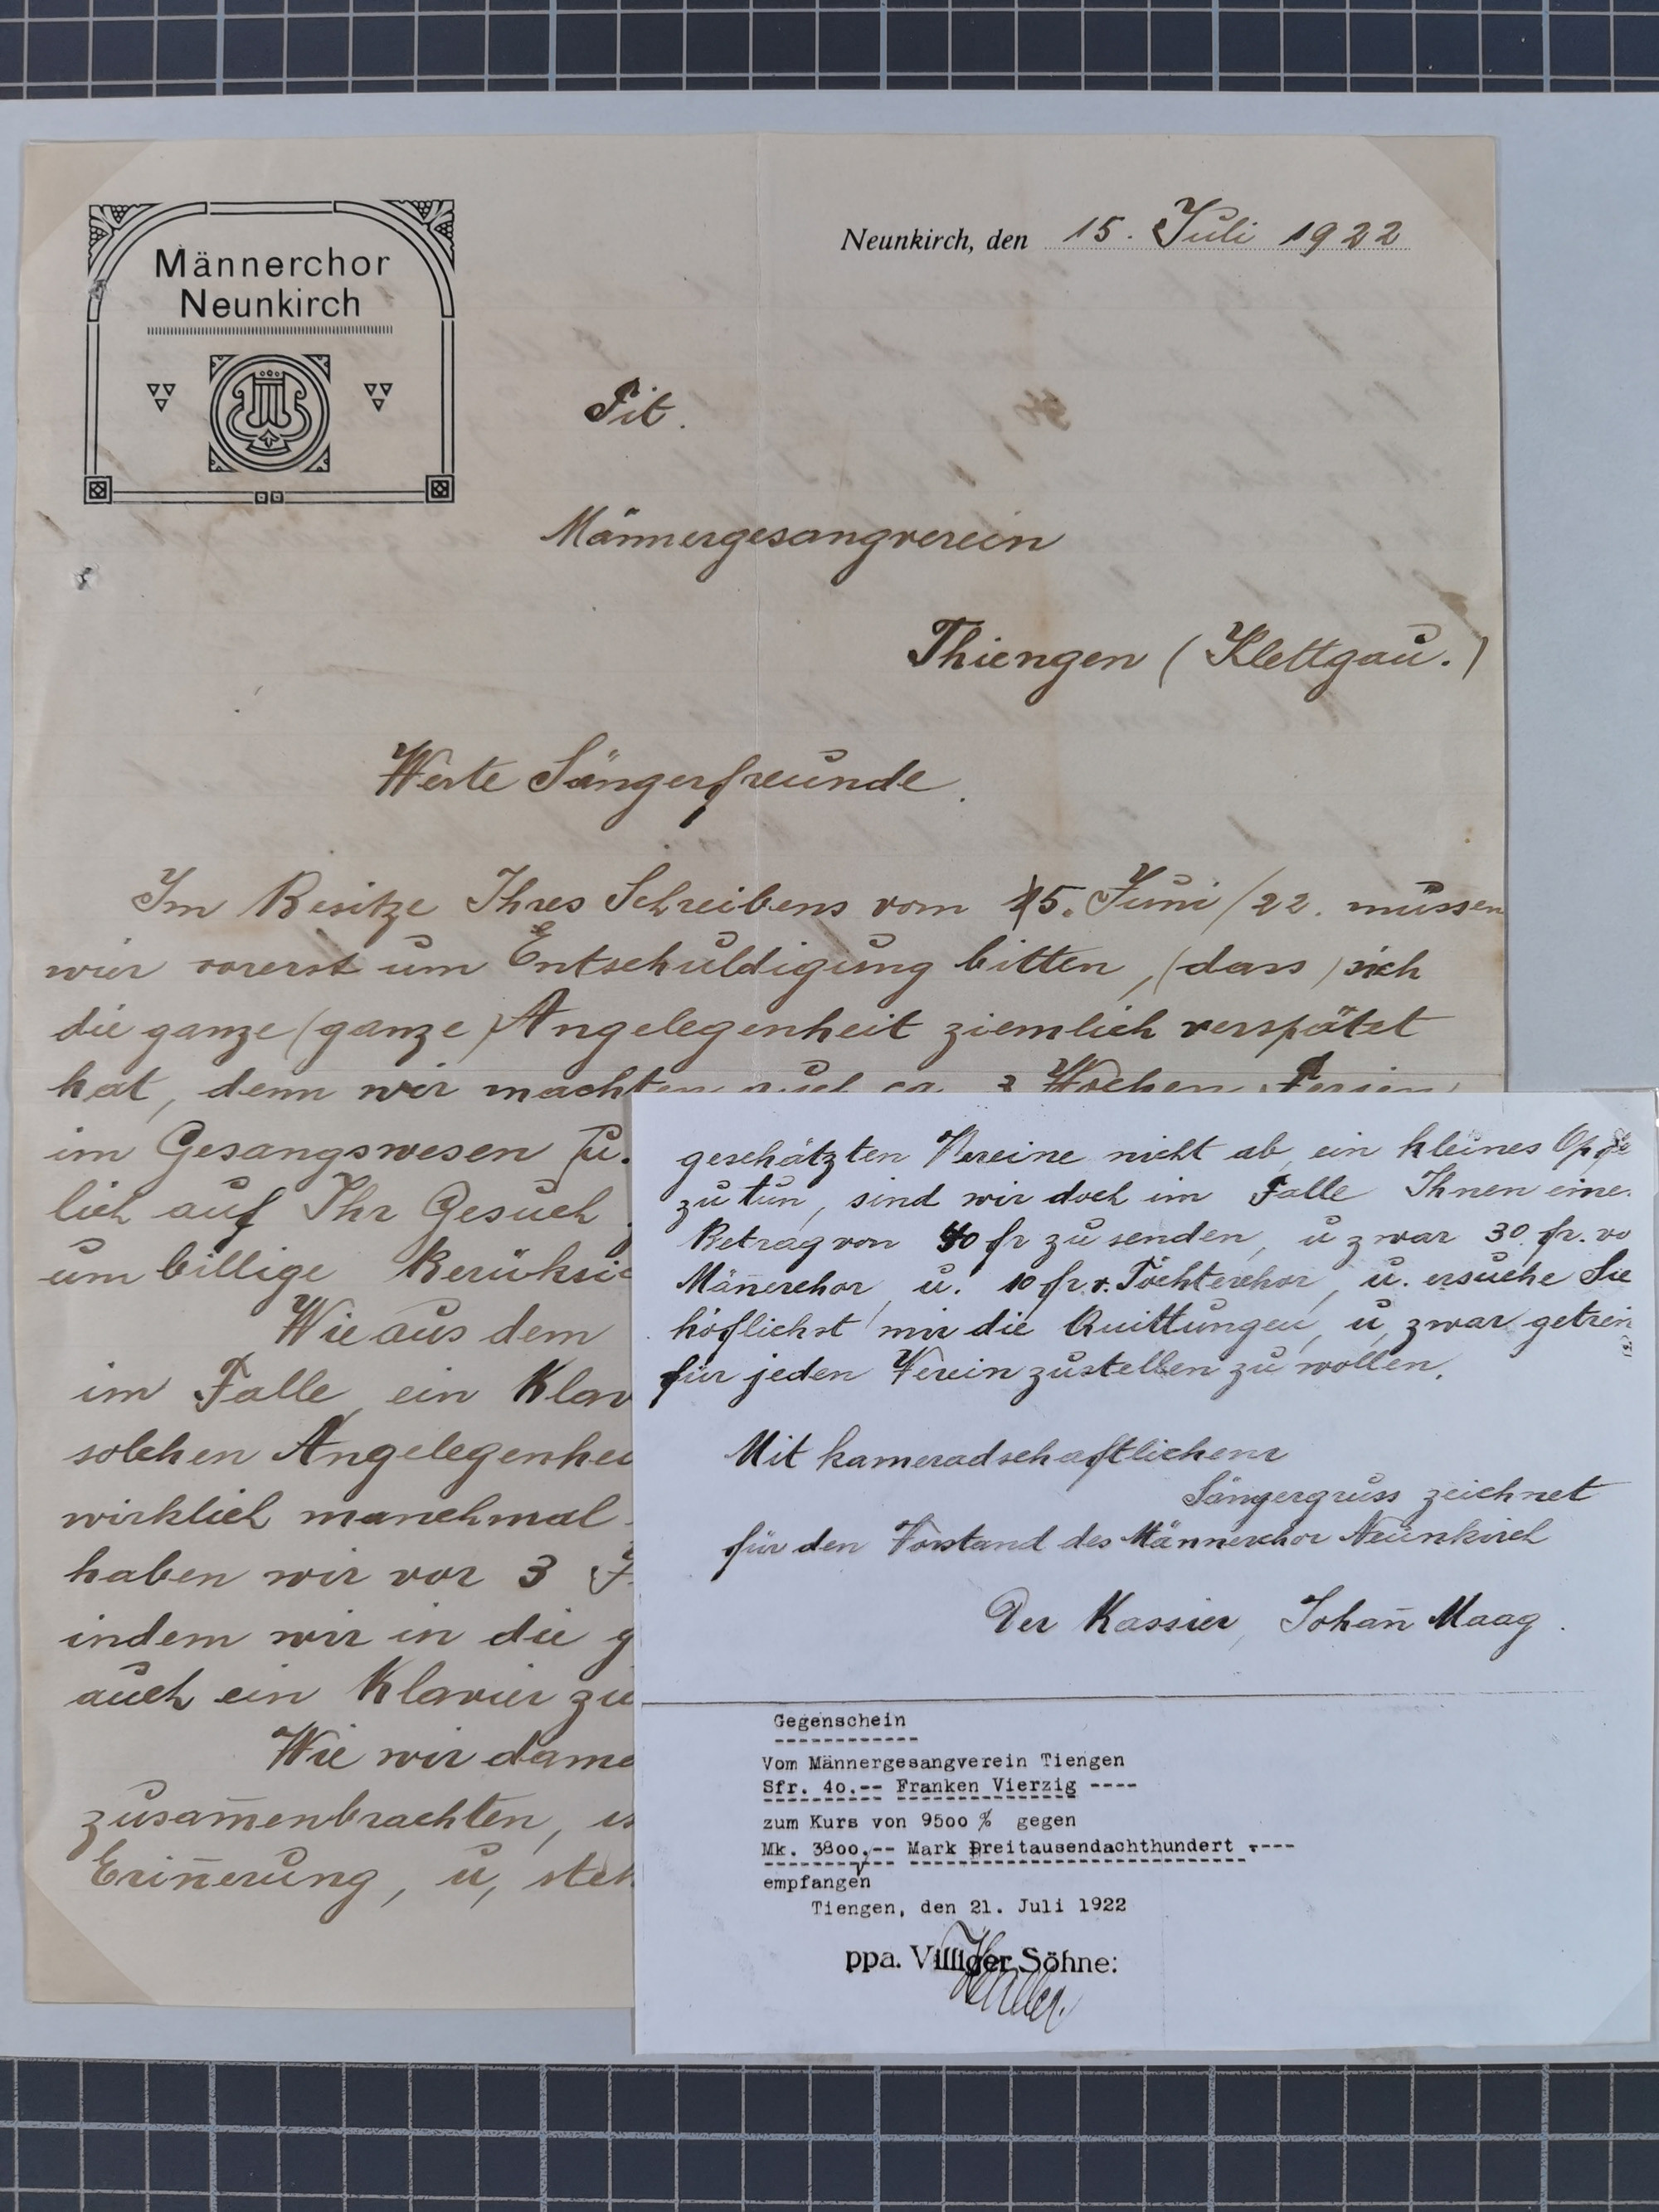 Männerchor
Neunkirch
Neunkirch, den 15. Juli 1922
Tit.
Männergesangverein
Thiengen (Klettgau.)
Werte Sängerfreunde.
Im Besitze Ihres Schreibens vom 15. Juni/22. müssen
wir vorerst um Entschuldigung bitten, (dass) sich
die ganze (ganze) Angelegenheit ziemlich verspätet
hat, denn wir machten 3 Wochen Ferien
im Gesangswesen u.
lich auf Ihr Gesuch
um billige
Wie aus dem
im Falle ein Klav
solchen Angelegenhei
wirklich manchmal
haben wir vor 3 J
indem wir in die g
auch ein Klavier zu
Wie wir dama
zusam̅enbrachten, es
Erin̅erung, u, steh
geschätzten Vereine nicht ab, ein kleines Opfe
zu tun, sind wir doch im Falle Ihnen eine
Betrag von 40 fr zu senden, u zwar 30. fr. vo
Män̅erchor, u. 10 fr. v. Töchterchor, u. ersuche Sie
höflichst mir die Quittungen, u, zwar getren
für jeden Verein zustellen zu wollen.
Mit kameradschaftlichem
Sängergruss zeichnet
für den Vorstand des Männerchor Neunkirch
Der Kassier, Johan̅ Maag.
Gegenschein
Vom Männergesangverein Tiengen
Sfr. 40.-- Franken Vierzig ----
zum Kurs von 9500 % gegen
Mk. 3800.-- Mark Dreitausendachthundert ----
empfangen
Tiengen, den 21. Juli 1922
ppa. Villiger Söhne: